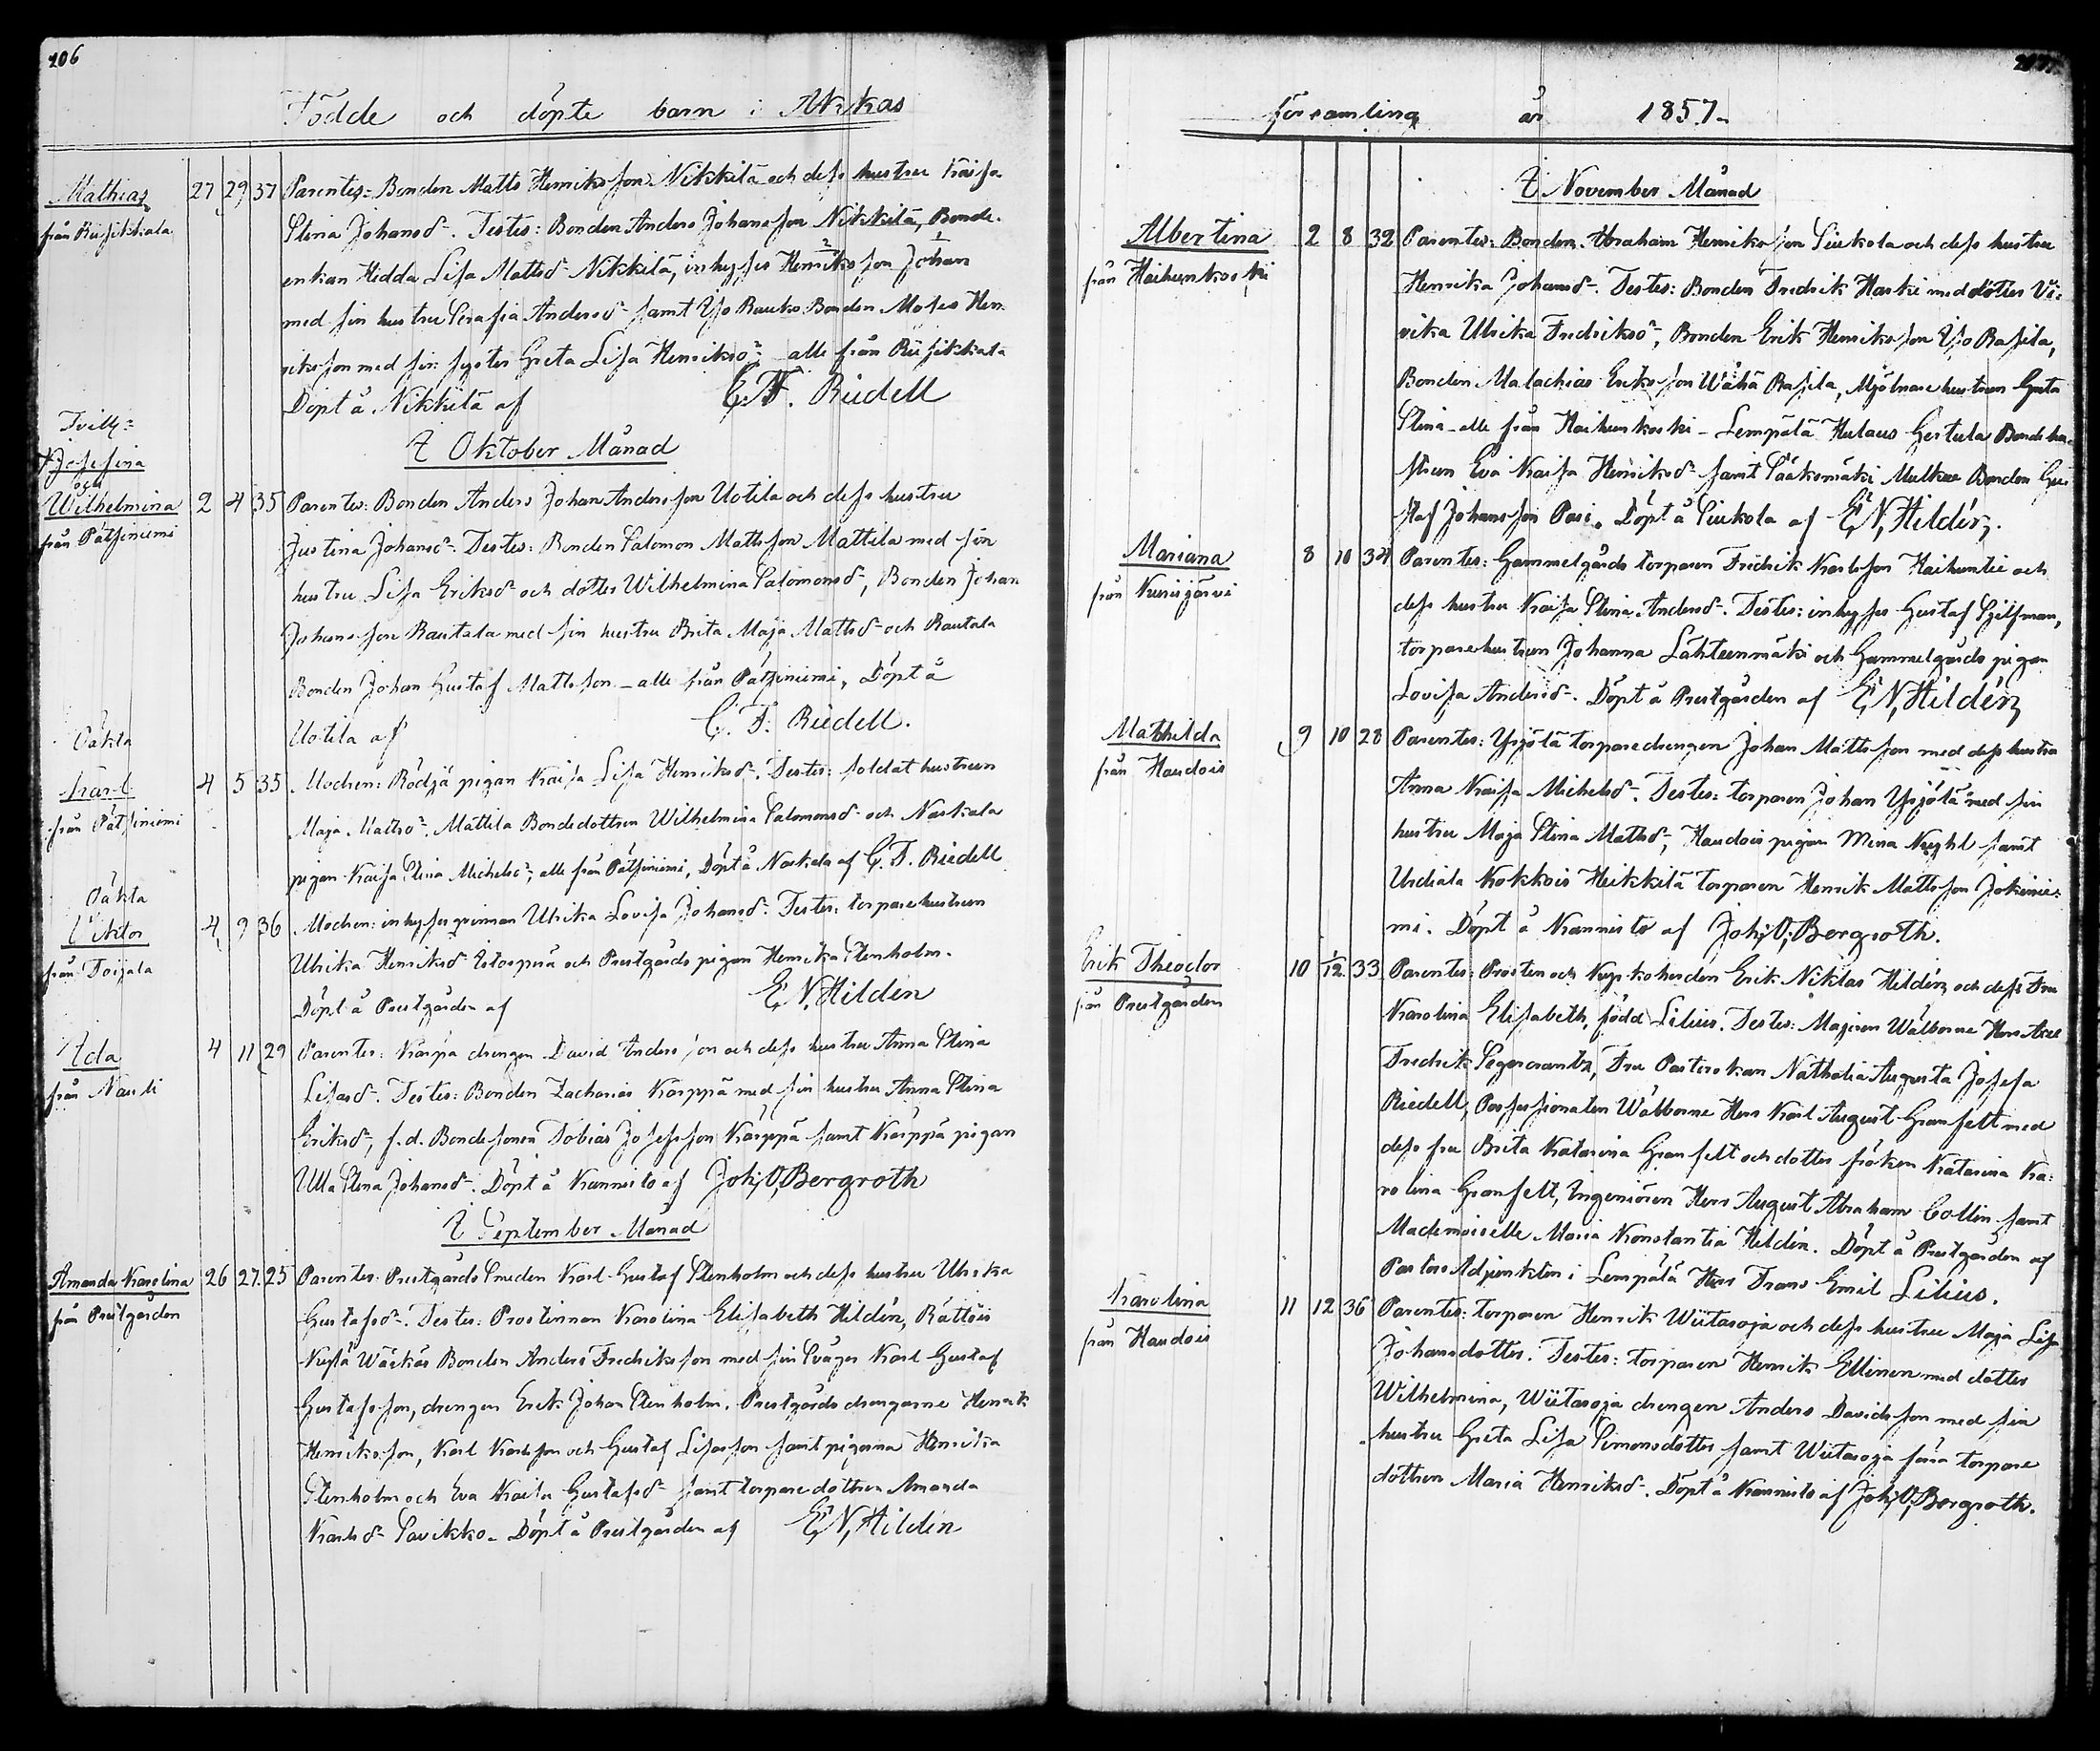 106
Födde och döpte barn i Akkas
Mathias 27 29 37 Parentes: Bonden Matts Henriksson Nikkilä och dess hustru Kaisa
från Riisikkala Stina Johansdr. Testes: Bonden Anders Johansson Nikkilä, Bonde-
enkan Hedda Lisa Mattsdr Nikkilä, inhyses Henriksson Johan
med sin hustru Serafia Andersdr samt Yso Rauko Bonden Moses Hen-
riksson med sin syster Greta Lisa Henriksdr alle från Riisikkala
Döpt å Nikkilä af C. F. Riedell
Tvill:
Josefina
och
I Oktober Månad
Wilhelmina 2 4 35 Parentes: Bonden Anders Johan Andersson Uotila och dess hustru
från Pätsiniemi Justina Johansdr. Testes: Bonden Salomon Mattsson Mattila med sin
hustru Lisa Eriksdr och dotter Wilhelmina Salomonsdr, Bonden Johan
Johansson Rautala med sin hustru Brita Maja Mattsdr och Rautala
Bonden Johan Gustaf Mattsson – alle från Pätsiniemi, Döpt å
Uotila af C. F. Riedell.
Oäkta
Karl 4 5 35 Modren: Rödjä pigan Kaisa Lisa Henriksdr. Testes: soldat hustrun
från Pätsiniemi Maja Mattsdr, Mattila Bondedottren Wilhelmina Salomonsdr och Naskala
pigan Kaisa Stina Michelsdr, alle från Pätsiniemi, Döpt å Naskala af C. F. Riedell
Oäkta
Viktor 4 9 36 Modren: inhyses qvinnan Ulrika Lovisa Johansdr. Testes: torparehustrun
från Toijala Ulrika Henriksdr och Prestgårds pigan Henrika Stenholm.
Döpt å Prestgården af E. N. Hildén
Ada 4 11 29 Parentes: Kärpä drengen David Andersson och dess hustru Anna Stina
från Nauli Lisasdr. Testes: Bonden Zacharias Kärppä med sin hustru Anna Stina
Eriksdr, f.d. Bondesonen Tobias Josefsson Kärppä samt Kärppä pigan
Ulla Stina Johansdr. Döpt å Kannisto af Joh. O. Bergroth
I September Månad
Amanda Karolina 26 27 25 Parentes: Prestgårds Smeden Karl Gustaf Stenholm och dess hustru Ulrika
från Prestgården Gustafsdr. Testes: Prostinnan Karolina Elisabeth Hildén, Rättöis
Bonden Anders Fredriksson med sin Svåger Karl Gustaf
Gustafsson, drengen Erik Johan Stenholm, Prestgårds drengarne Henrik
Henriksson, Karl Karlsson och Gustaf Lisasson samt pigorna Henrika
Stenholm och Eva Kaisa Gustafsdr samt torparedottren Amanda
Karlsdr Savikko. Döpt å Prestgården af E. N. Hildén
församling år 1857.
I November Månad
Albertina 2 8 32 Parentes: Bonden Abraham Henriksson Siukola och dess hustru
från Haihunkoski Henrika Johansdr. Testes: Bonden Fredrik Harki med dotter Ul-
rika Ulrika Fredriksdr, Bonden Erik Henriksson Yso Rasila,
Bonden Malachias Eriksson Wähä Rasila, Mjölnarehustrun Greta
Stina – alle från Haihunkoski – Lempälä Hulaus Gertula Bondehu-
strun Eva Kaisa Henriksdr samt Sääksmäki Bonden Gu-
staf Johansson Pasi. Döpt å Siukola af E. N. Hildén.
Mariana 8 10 34 Parentes: Gammelgårds torparen Fredrik Karlsson Haihuntie och
från Kurisjärvi dess hustru Kaisa Stina Andersdr. Testes: inhyses Gustaf
torparehustrun Johanna Lähteenmäki och Gammelgårds pigan
Lovisa Andersdr. Döpt å Prestgården af E. N. Hildén
Mathilda 9 10 28 Parentes: Yrjölä torparedrengen Johan Mattsson med dess hustru
från Haudois Anna Kaisa Michelsdr. Testes: torparen Johan Yrjölä med sin
hustru Maja Stina Mattsdr, Haudois pigan Mina samt
Urdiala Kokkois Heikkilä torparen Henrik Mattsson Jokinie-
mi. Döpt å Kannisto af Joh. O. Bergroth.
Erik Theodor 10 1/12 33 Parentes: Prosten och Kyrkoherden Erik Niklas Hildén och dess Fru
från Prestgården Karolina Elisabeth, född Lilius. Testes: Majoren Wälborne Herr Axel
Fredrik Segercrantz, Fru Pastorskan Nathalia Augusta Josefa
Riedell, Possessionaten Wälborne Herr Karl August Granfelt med
dess fru Brita Katarina Granfelt och dotter fröken Katarina Ka-
rolina Granfelt, Ingeniören Herr August Abraham Collin samt
Mademoiselle Maria Konstantia Hildén. Döpt å Prestgården af
Pastors Adjunkten i Lempälä Herr Frans Emil Lilius.
Karolina 11 12 36 Parentes: torparen Henrik Wiitasoja och dess hustru Maja Lisa
från Haudois Johansdotter. Testes: torparen Henrik Ellinen med dotter
Wilhelmina, Wiitasoja drengen Anders Davidsson med sin
hustru Greta Lisa Simonsdotter samt Wiitasoja torpare
dottren Maria Henriksdr. Döpt å Kannisto af Joh. O. Bergroth.